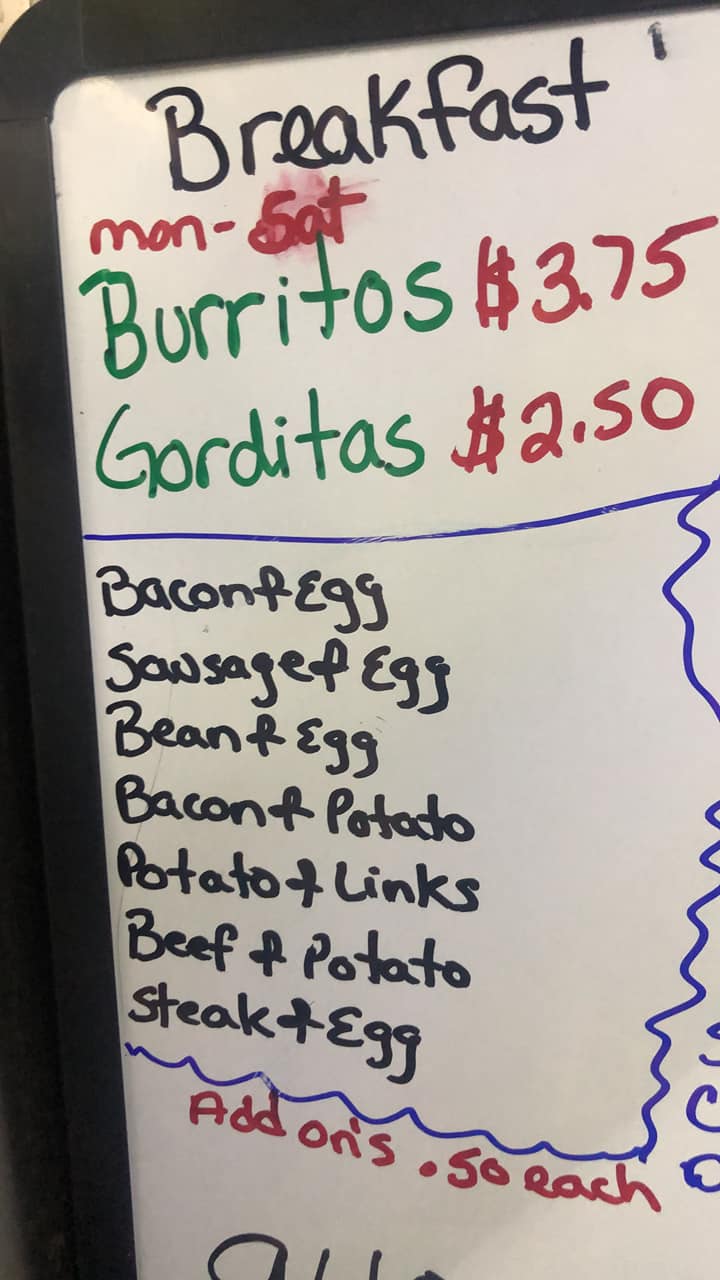 Breakfast
mon-Sat
Burritos $3.75
Gorditas $2.50
Bacon & Egg
Sausage & Egg
Bean & Egg
Bacon & Potato
Potato & Links
Beef & Potato
Steak & Egg
Add on's .50 each